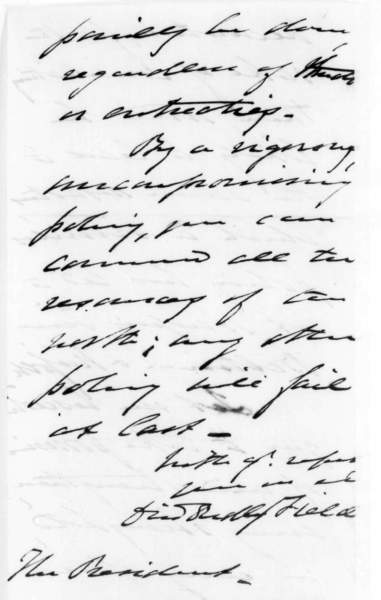 possibly be done
regardless of threats
or entreaties.
By a vigorous,
uncompromising
policy, you can
command all the
resources of the
north; any other
policy will fail
at last —
With gt. respect
David Dudley Field
The President.